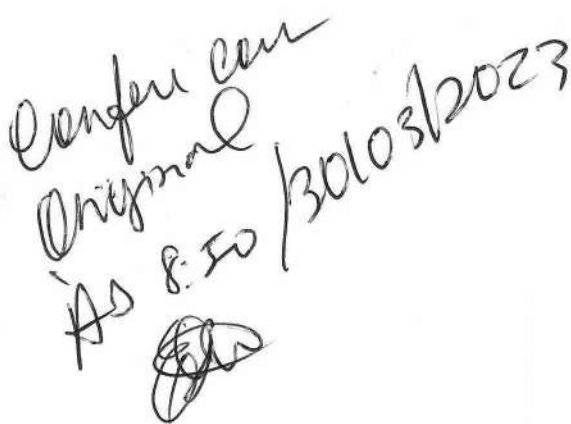 Confere com
Original
Às 8:50 / 30/03/2023